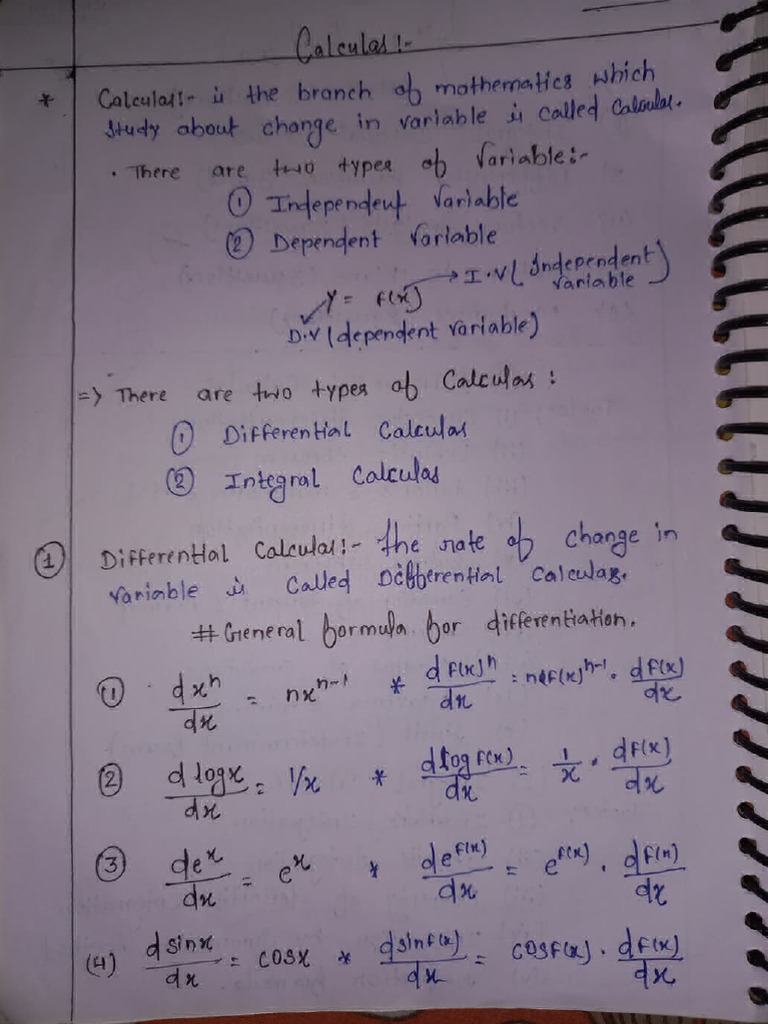 Calculas :-
* Calculas:- is the branch of mathematics which
study about change in variable is called Calculas.
• There are two types of Variable :-
① Independent Variable
② Dependent Variable
Y = f(x) → I.V ( Independent variable )
D.V ( dependent variable )
=> There are two types of Calculas :
① Differential Calculas
② Integral Calculas
① Differential Calculas :- The rate of change in
variable is called Differential Calculas.
# General formula for differentiation.
① dxⁿ/dx = nxⁿ⁻¹ * df(x)ⁿ/dx = nf(x)ⁿ⁻¹ . df(x)/dx
② d logx/dx = 1/x * d log f(x)/dx = 1/x . df(x)/dx
③ deˣ/dx = eˣ * de^f(x)/dx = e^f(x) . df(x)/dx
(4) d sinx/dx = cosx * d sinf(x)/dx = cosf(x) . df(x)/dx